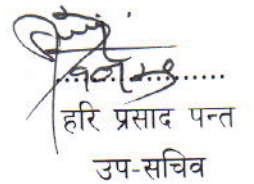 हरि प्रसाद पन्त
उप-सचिव